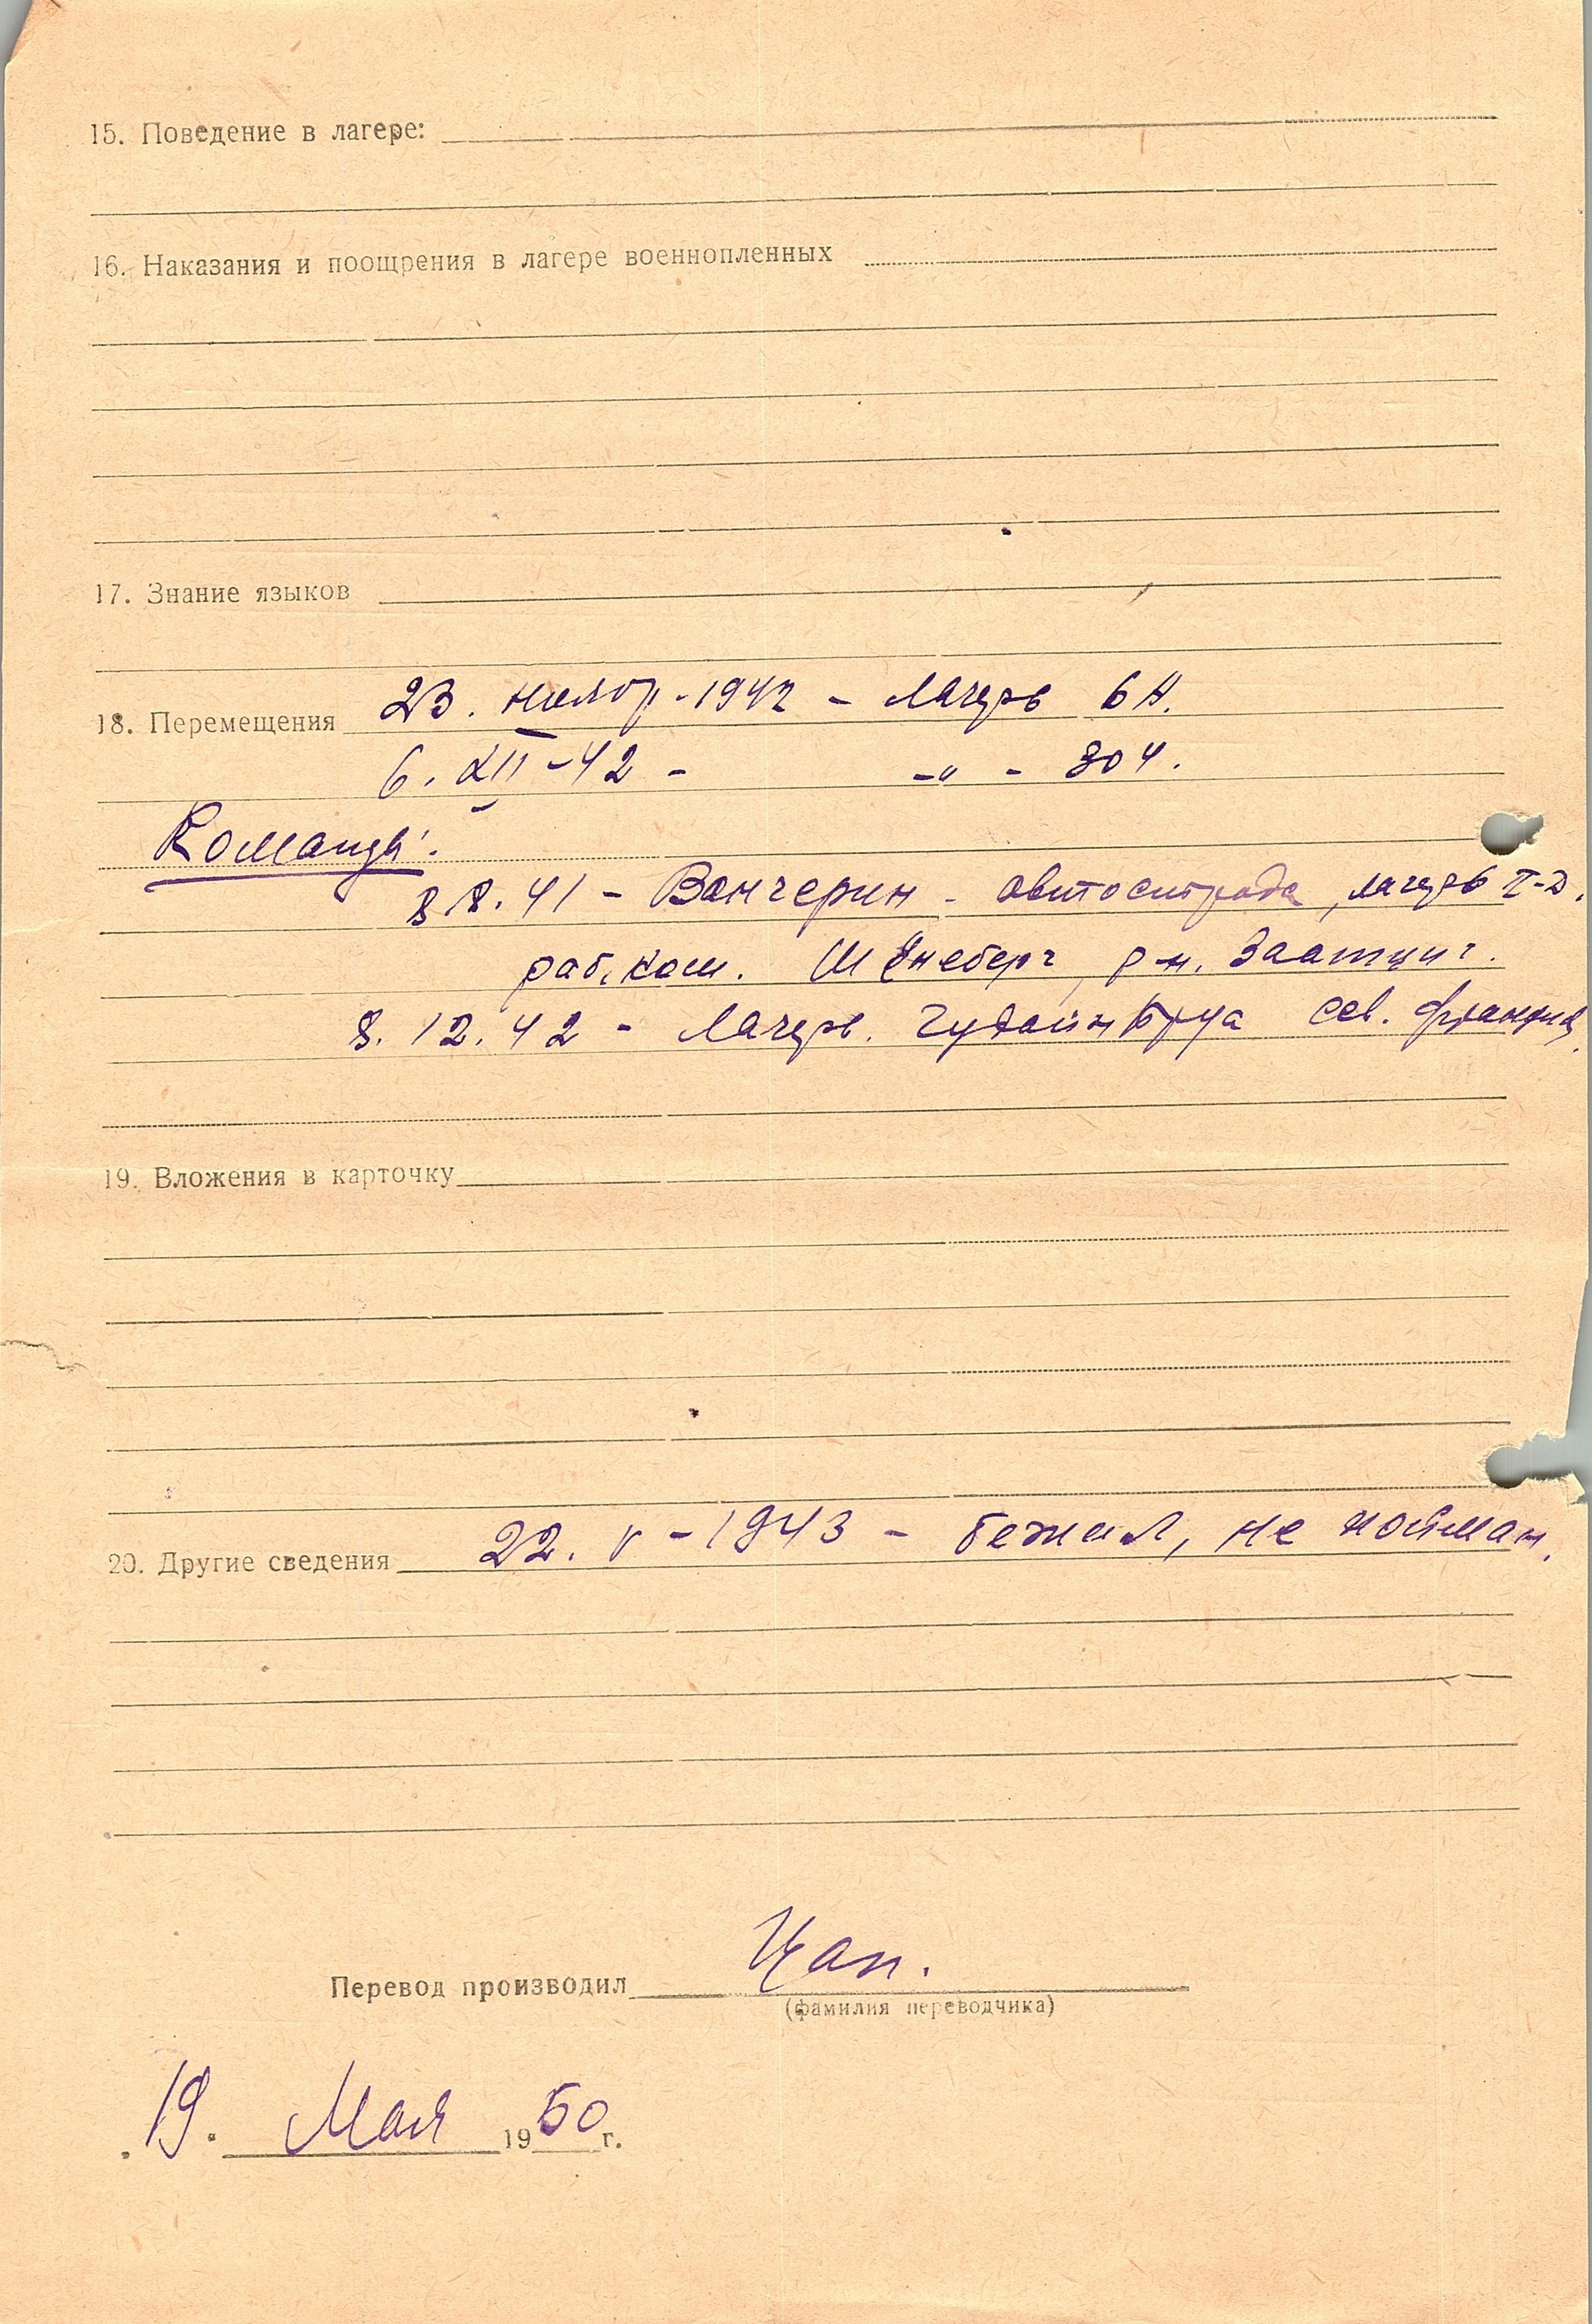 15. Поведение в лагере:
16. Наказания и поощрения в лагере военнопленных
17. Знание языков
18. Перемещения 23. ноябр. - 1942 - Лагерь 6 А.
6. XII - 42 - -"- 304.
Команды:
8. 41 - Вангерин - автострада, лагерь 2-Д.
раб. ком. Шёнеберг, р-н. Заатциг.
8. 12. 42 - Лагерь. сев. Франция.
19. Вложения в карточку
20. Другие сведения 22. V - 1943 - бежал, не пойман.
Перевод производил Цап.
(фамилия переводчика)
19. Мая 1950 г.